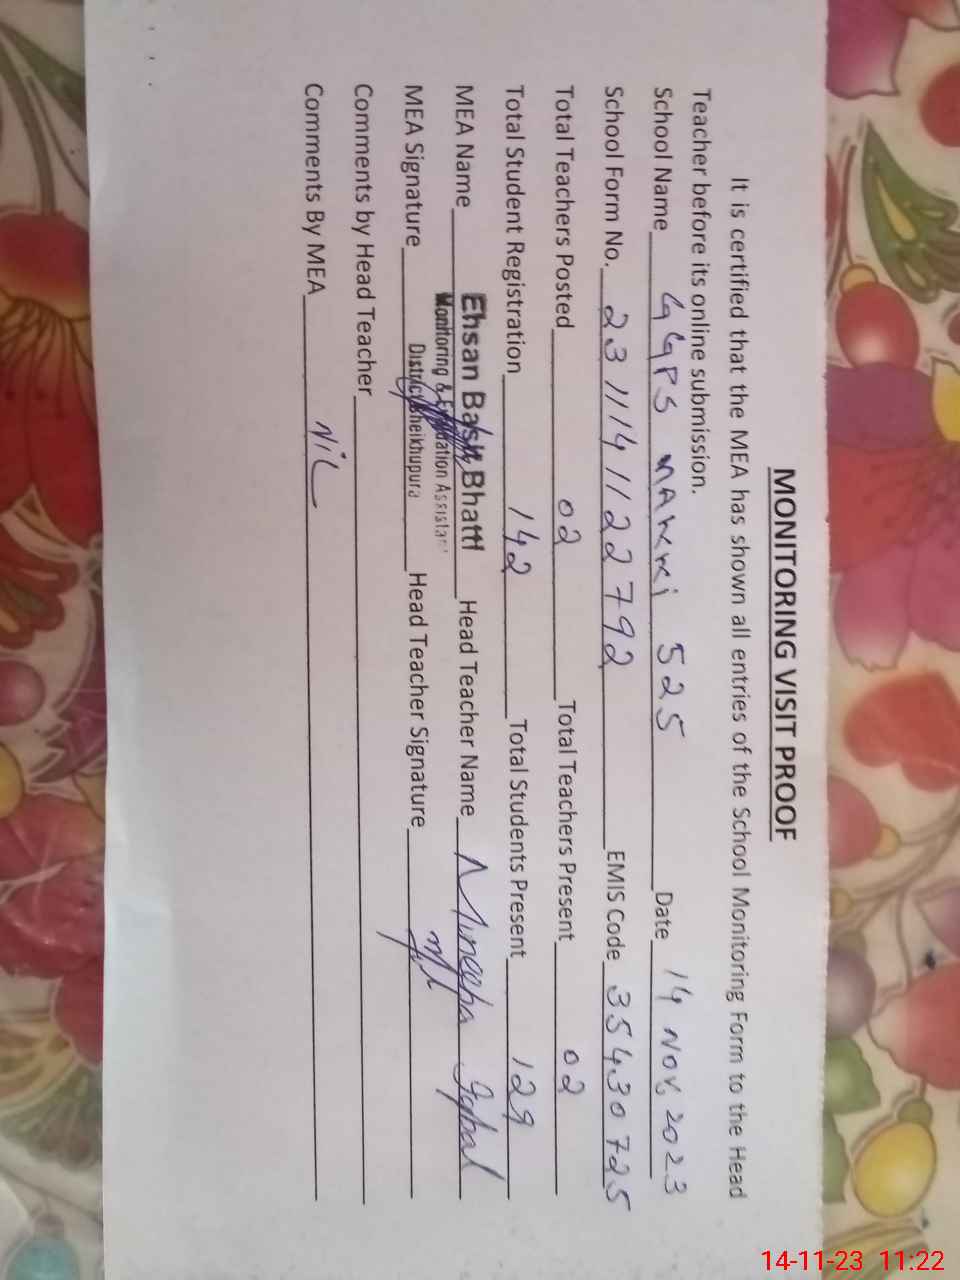 MONITORING VISIT PROOF
It is certified that the MEA has shown all entries of the School Monitoring Form to the Head
Teacher before its online submission.
School Name GGPS 525 Date 14 Nov, 2023
School Form No. 2311141122792 EMIS Code 35430725
Total Teachers Posted 02 Total Teachers Present 02
Total Student Registration 142 Total Students Present 129
MEA Name Ehsan Bhatti Head Teacher Name Muneeba Iqbal
Monitoring & Evaluation Assistant
MEA Signature District Sheikhupura Head Teacher Signature
Comments by Head Teacher
Comments By MEA NiL
14-11-23 11:22